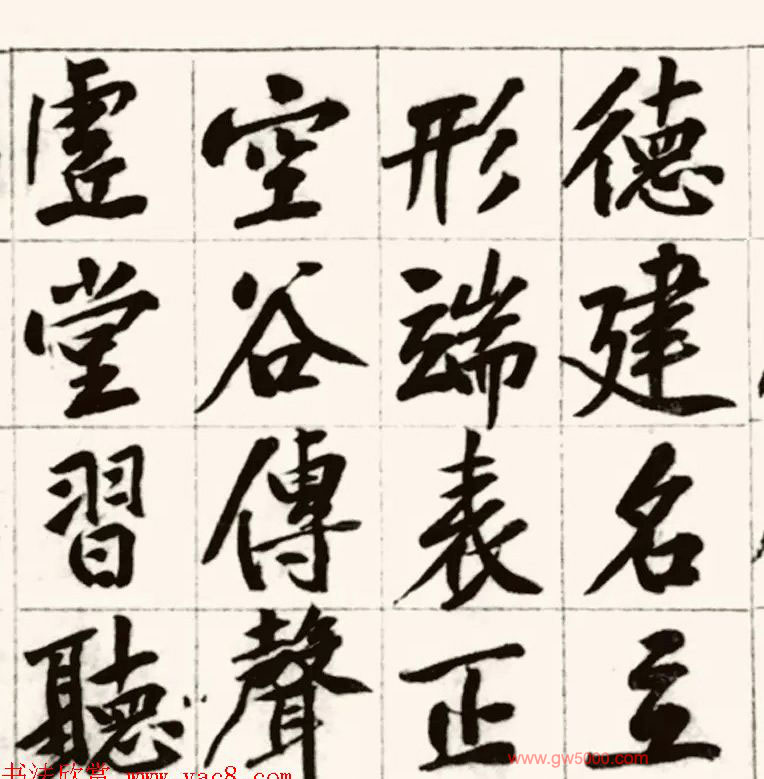 德建名立
形端表正
空谷傳聲
虛堂習聽
www.gw5000.com
书法欣赏 www.yac8.com